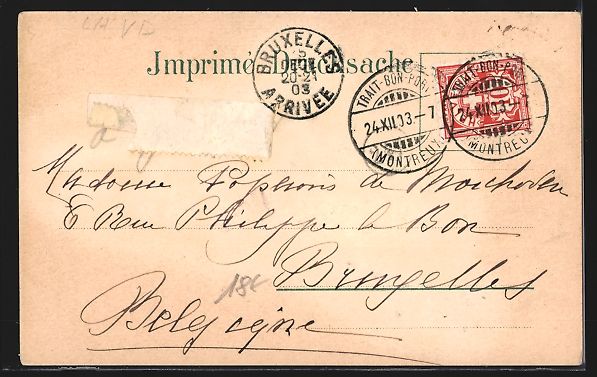 CH VD
Imprimé Drucksache
BRUXELLES
5
DECE
20-21
03
ARRIVÉE
TRAIT-BON-PORT
24.XII.03-7
(MONTREUX)
TRAIT-BON-PORT
24.XII.03-7
(MONTREUX)
10
a
Madame de
6 Rue Philippe le Bon
Bruxelles
18€
Belgique